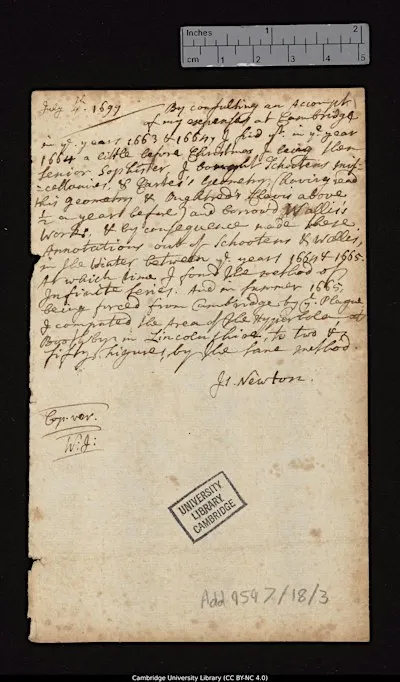 Inches 1 2
cm 1 2 3 4 5
July 4th. 1699
By consulting an Accompt
of my expenses at Cambridge
in ye. years 1663 & 1664, I find yt. in ye. year
1664 a little before Christmas I being then
senior Sophister, I bought Schootens Mis-
cellanies, & Cartes's Geometry (having read
this Geometry & Oughtred's Clavis above
½ a year before) and borrow'd Wallis's
Works, & by consequence made these
Annotations out of Schooten & Wallis,
in the Winter between ye years 1664 & 1665.
At which time I found the method of
Infinite series. And in summer 1665
being forced from Cambridge by ye. Plague
I computed the Area of the Hyperbola at
Boothby in Lincolnshire, to two &
fifty figures by the same method.
Is. Newton.
Cop. ver.
W: J:
UNIVERSITY
LIBRARY
CAMBRIDGE
Add 9597/18/3
Cambridge University Library (CC BY-NC 4.0)